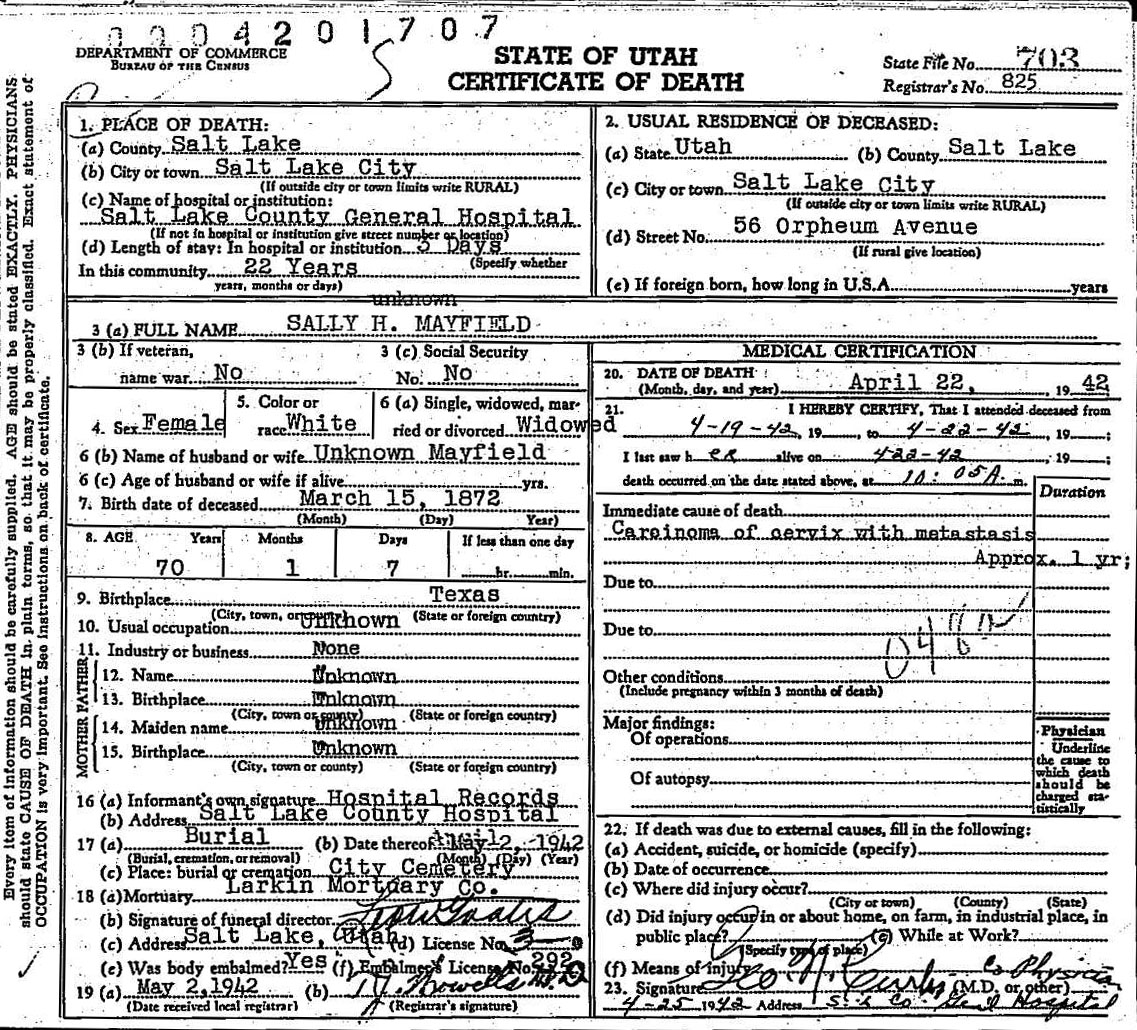 0004201707
DEPARTMENT OF COMMERCE
BUREAU OF THE CENSUS
STATE OF UTAH
CERTIFICATE OF DEATH
State File No. 703
Registrar's No. 825
Every item of information should be carefully supplied. AGE should be stated EXACTLY. PHYSICIANS
should state CAUSE OF DEATH in plain terms, so that it may be properly classified. Exact statement of
OCCUPATION is very important. See instructions on back of certificate.
1. PLACE OF DEATH:
(a) County Salt Lake
(b) City or town Salt Lake City
(If outside city or town limits write RURAL)
(c) Name of hospital or institution:
Salt Lake County General Hospital
(If not in hospital or institution give street number or location)
(d) Length of stay: In hospital or institution 3 Days
(Specify whether
In this community 22 Years
years, months or days)
2. USUAL RESIDENCE OF DECEASED:
(a) State Utah (b) County Salt Lake
(c) City or town Salt Lake City
(If outside city or town limits write RURAL)
(d) Street No. 56 Orpheum Avenue
(If rural give location)
(e) If foreign born, how long in U.S.A. years
unknown
3 (a) FULL NAME SALLY H. MAYFIELD
3 (b) If veteran, name war No
3 (c) Social Security No. No
4. Sex Female
5. Color or race White
6 (a) Single, widowed, married or divorced Widowed
6 (b) Name of husband or wife Unknown Mayfield
6 (c) Age of husband or wife if alive yrs.
7. Birth date of deceased March 15, 1872
(Month) (Day) Year)
8. AGE Years Months Days If less than one day
70 1 7 hr. min.
9. Birthplace Texas
(City, town, or county) (State or foreign country)
10. Usual occupation Unknown
11. Industry or business None
FATHER
12. Name Unknown
13. Birthplace Unknown
(City, town or county) (State or foreign country)
MOTHER
14. Maiden name Unknown
15. Birthplace Unknown
(City, town or county) (State or foreign country)
16 (a) Informant's own signature Hospital Records
(b) Address Salt Lake County Hospital
17 (a) Burial (b) Date thereof May 2, 1942
(Burial, cremation, or removal) (Month) (Day) (Year)
(c) Place: burial or cremation City Cemetery
18 (a) Mortuary Larkin Mortuary Co.
(b) Signature of funeral director
(c) Address Salt Lake, Utah (d) License No. 3
(e) Was body embalmed? Yes (f) Embalmer's License No. 292
19 (a) May 2, 1942 (b) M.D
(Date received local registrar) (Registrar's signature)
MEDICAL CERTIFICATION
20. DATE OF DEATH
(Month, day, and year) April 22, 1942
21. I HEREBY CERTIFY, That I attended deceased from
4-19-42, 19 , to 4-22-42, 19 ;
I last saw h er alive on 4-22-42, 19 ;
death occurred on the date stated above, at 10:05 A. m.
Duration
Immediate cause of death
Carcinoma of cervix with metastasis
Approx. 1 yr;
Due to
Due to
Other conditions
(Include pregnancy within 3 months of death)
Major findings:
Of operations
Of autopsy
Physician
Underline
the cause to
which death
should be
charged sta-
tistically
22. If death was due to external causes, fill in the following:
(a) Accident, suicide, or homicide (specify)
(b) Date of occurrence
(c) Where did injury occur?
(City or town) (County) (State)
(d) Did injury occur in or about home, on farm, in industrial place, in
public place? (e) While at Work?
(Specify type of place)
(f) Means of injury
23. Signature Co Physician (M.D. or other)
4-25 1942 Address S. L. Co. Gen'l Hospital